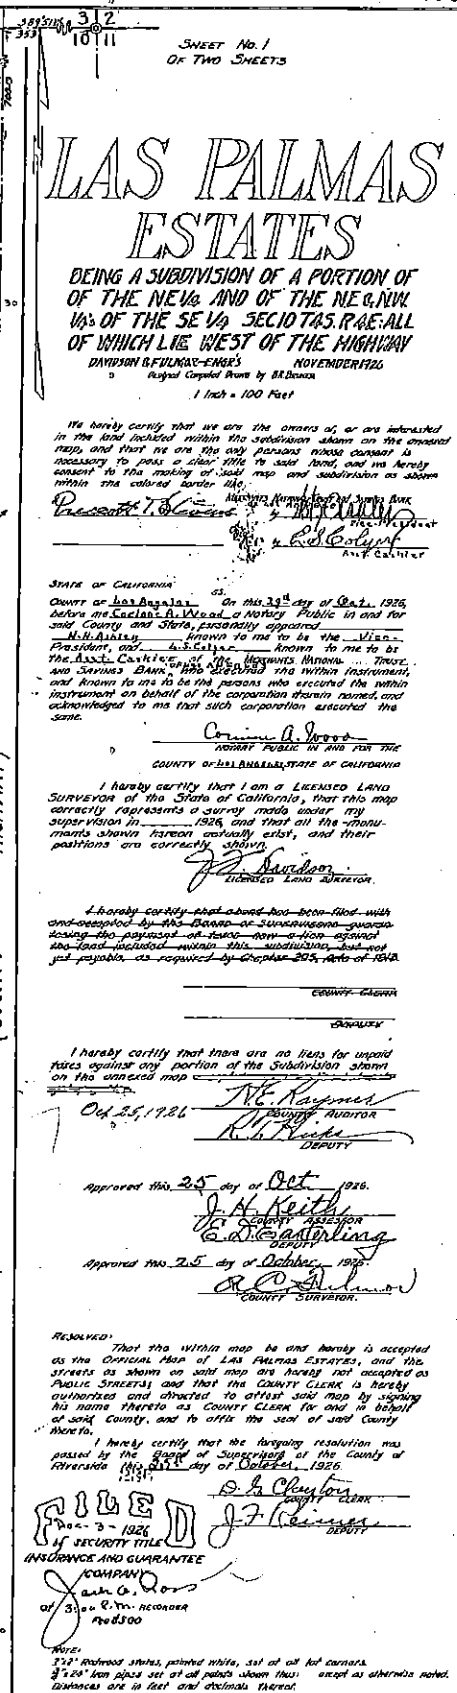 3 2
10 11
SHEET No. 1
OF TWO SHEETS
LAS PALMAS
ESTATES
BEING A SUBDIVISION OF A PORTION OF
OF THE NE1/4 AND OF THE NE & NW
1/4's OF THE SE 1/4 SEC10 T4S. R4E: ALL
OF WHICH LIE WEST OF THE HIGHWAY
DAVIDSON & FULMOR-ENGR'S NOVEMBER 1926
Designed Compiled Drawn by
1 Inch = 100 Feet
We hereby certify that we are the owners of, or are interested
in the land included within the subdivision shown on the annexed
map, and that we are the only persons whose consent is
necessary to pass a clear title to said land, and we hereby
consent to the making of said map and subdivision as shown
within the colored border line.
Prescott T. Stevens
Vice-President
L.S. Colyer
Asst. Cashier
STATE OF CALIFORNIA
SS.
COUNTY OF Los Angeles On this 29th day of Oct. 1926,
before me Corinne A. Wood a Notary Public in and for
said County and State, personally appeared
N.H. Ashley known to me to be the Vice-
President, and L.S. Colyer known to me to be
the Asst. Cashier of the MERCHANTS NATIONAL TRUST
AND SAVINGS BANK, who executed the within instrument,
and known to me to be the persons who executed the within
instrument on behalf of the corporation therein named, and
acknowledged to me that such corporation executed the
same.
Corinne A. Wood
NOTARY PUBLIC IN AND FOR THE
COUNTY OF Los Angeles, STATE OF CALIFORNIA
I hereby certify that I am a LICENSED LAND
SURVEYOR of the State of California, that this map
correctly represents a survey made under my
supervision in 1926, and that all the monu-
ments shown hereon actually exist, and their
positions are correctly shown.
Davidson
LICENSED LAND SURVEYOR.
I hereby certify that a bond has been filed with
and accepted by the BOARD OF SUPERVISORS guaran-
teeing the payment of taxes now a lien against
the land included within this subdivision, but not
yet payable, as required by Chapter 295, Acts of
COUNTY CLERK
DEPUTY
I hereby certify that there are no liens for unpaid
taxes against any portion of the Subdivision shown
on the annexed map
Oct 25, 1926
N.E. Raymer
COUNTY AUDITOR
R.L. Hicks
DEPUTY
Approved this 25 day of Oct. 1926.
J. H. Keith
COUNTY ASSESSOR
E. D. Easterling
DEPUTY
Approved this 25 day of October, 1926.
A. C. Fulmor
COUNTY SURVEYOR.
RESOLVED:
That the within map be and hereby is accepted
as the OFFICIAL MAP of LAS PALMAS ESTATES, and the
streets as shown on said map are hereby not accepted as
PUBLIC STREETS; and that the COUNTY CLERK is hereby
authorized and directed to attest said map by signing
his name thereto as COUNTY CLERK for and in behalf
of said County, and to affix the seal of said County
thereto.
I hereby certify that the foregoing resolution was
passed by the Board of Supervisors of the County of
Riverside this day of October, 1926.
D. G. Clayton
COUNTY CLERK
J. F. Reimer
DEPUTY
FILED
Dec - 3 - 1926
of SECURITY TITLE
INSURANCE AND GUARANTEE
COMPANY
Jack A. Ross
at P.M. RECORDER
NOTE:
2"x2" Redwood stakes, painted white, set at all lot corners.
Iron pipes set at all points shown thus: except as otherwise noted.
Distances are in feet and decimals thereof.